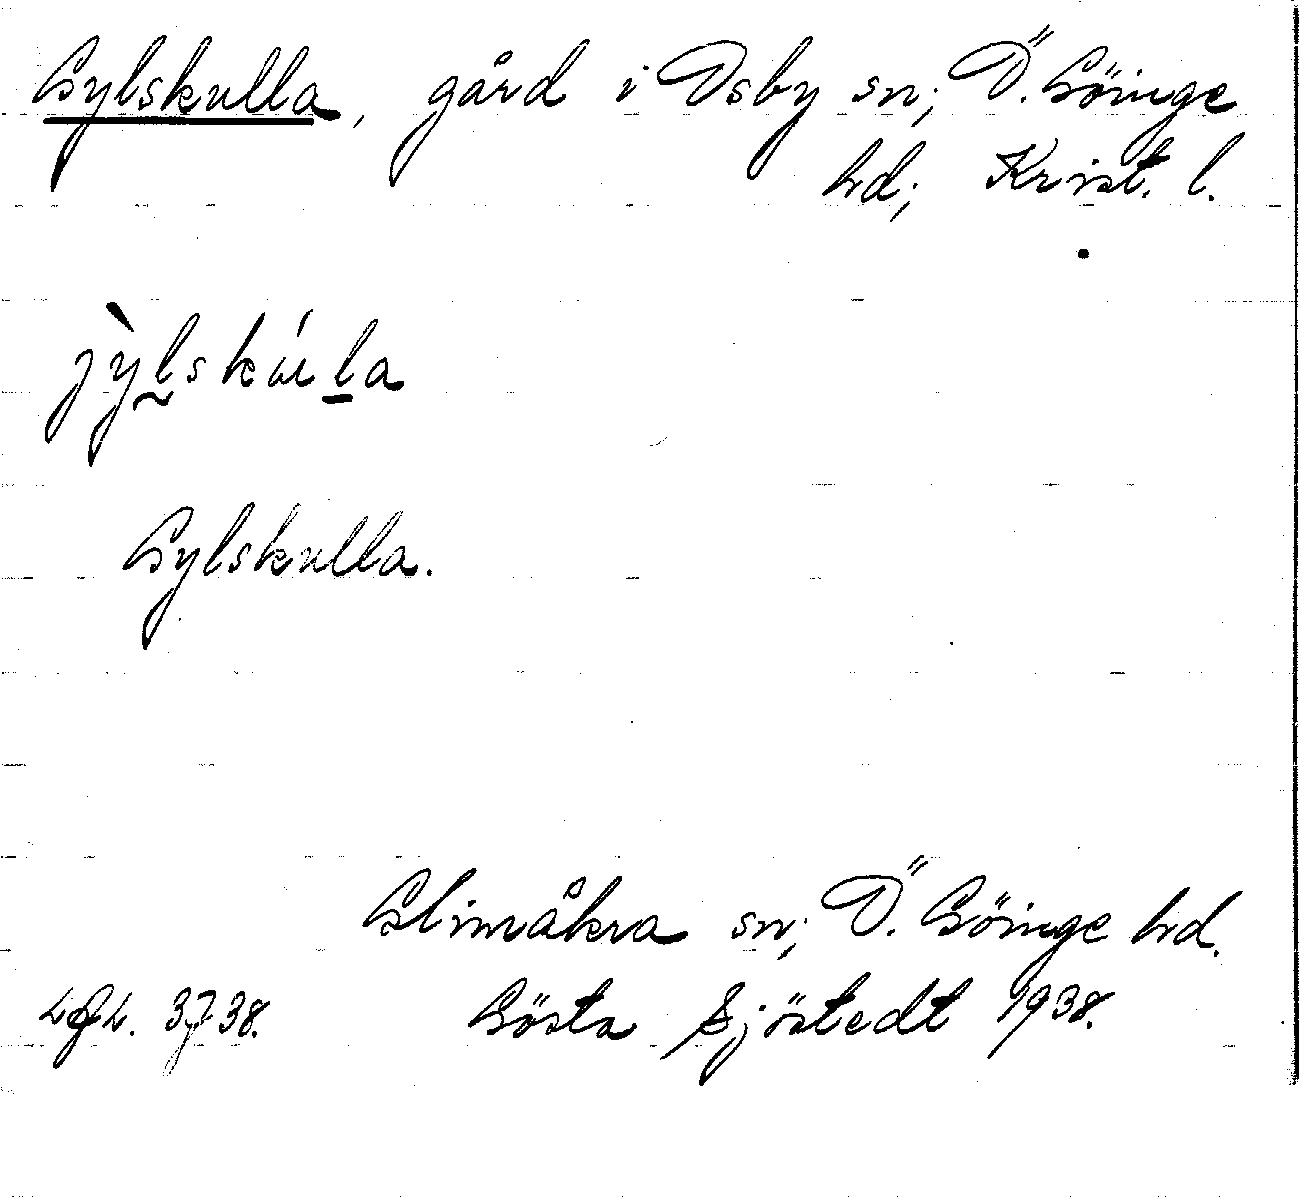 Gylskulla, gård i Osby sn; Ö. Göinge
hd; Krist. l.
jỳlskúla
Gylskulla.
Glimåkra sn; Ö. Göinge hd.
3738. Gösta Sjöstedt 1938.